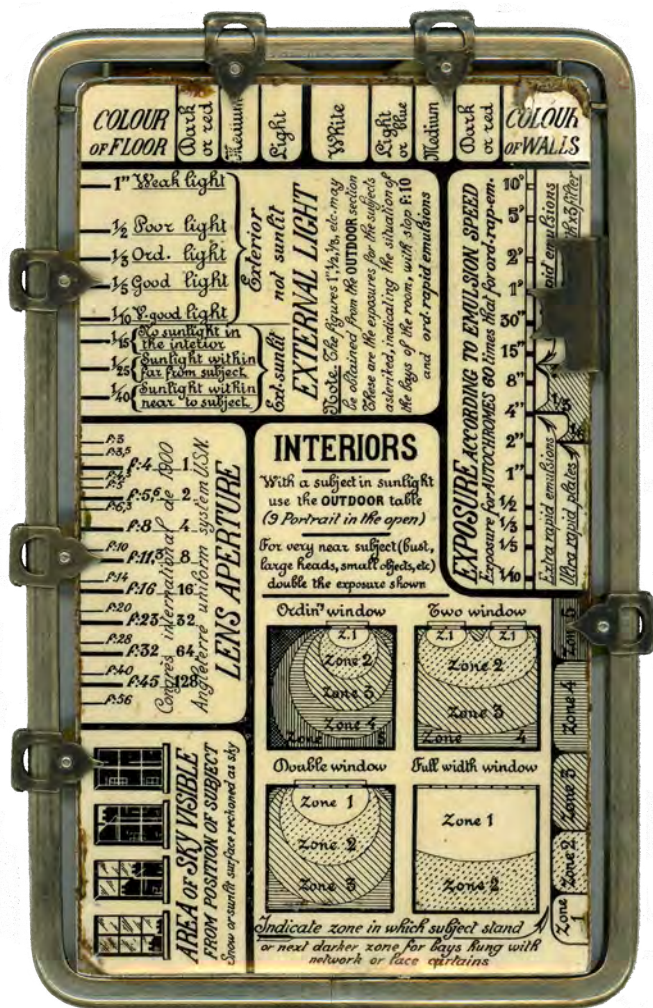 COLOUR
OF FLOOR
Dark
or red
Medium
Light
White
Light
or blue
Medium
Dark
or red
COLOUR
OF WALLS
1" Weak light
1/2 Poor light
1/3 Ord. light
1/5 Good light
1/10 V. good light
Exterior
not sunlit
1/15 No sunlight in
the interior
1/25 Sunlight within
far from subject
1/40 Sunlight within
near to subject
Ext. sunlit
EXTERNAL LIGHT
Note. The figures 1", 1/2, 1/3, etc. may
be obtained from the OUTDOOR section
These are the exposures for the subjects
asterited, indicating the situation of
the bays of the room, with stop F:10
and ord-rapid emulsions
EXPOSURE ACCORDING TO EMULSION SPEED
Exposure for AUTOCHROMES 60 times that for ord-rap-em.
10'
5'
2'
1'
30"
15"
8"
4"
2"
1"
1/2
1/3
1/5
1/10
rapid emulsions
Extra rapid emulsions
Ultra rapid plates
F:3
F:3,5
F:4 1
F:5
F:5,6 2
F:6,3
F:8 4
F:10
F:11,3 8
F:14
F:16 16
F:20
F:23 32
F:28
F:32 64
F:40
F:45 128
F:56
Congrès international de 1900
Angleterre uniform system U.S.N.
LENS APERTURE
INTERIORS
With a subject in sunlight
use the OUTDOOR table
(9 Portrait in the open)
For very near subject (bust,
large heads, small objects, etc)
double the exposure shown
Ordinʸ window
Z.1
Zone 2
Zone 3
Zone 4
Zone 5
Two window
Z.1 Z.1
Zone 2
Zone 3
Zone 4
Double window
Zone 1
Zone 2
Zone 3
Full width window
Zone 1
Zone 2
Zone 5
Zone 4
Zone 3
Zone 2
Zone 1
Indicate zone in which subject stand
or next darker zone for bays hung with
network or lace curtains
AREA OF SKY VISIBLE
FROM POSITION OF SUBJECT
Snow or sunlit surface reckoned as sky